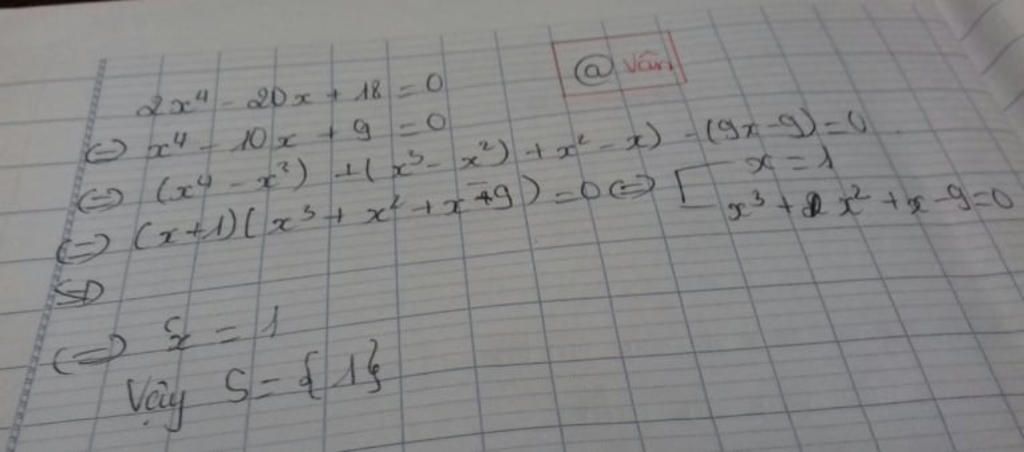 @ Vân
2x⁴ - 20x + 18 = 0
⇔ x⁴ - 10x + 9 = 0
⇔ (x⁴ - x³) + (x³ - x²) + x² - x) - (9x - 9) = 0
⇔ (x+1)(x³ + x² + x - 9) = 0 ⇔ [ x = 1
x³ + x² + x - 9 = 0
⇔ x = 1
Vậy S = {1}